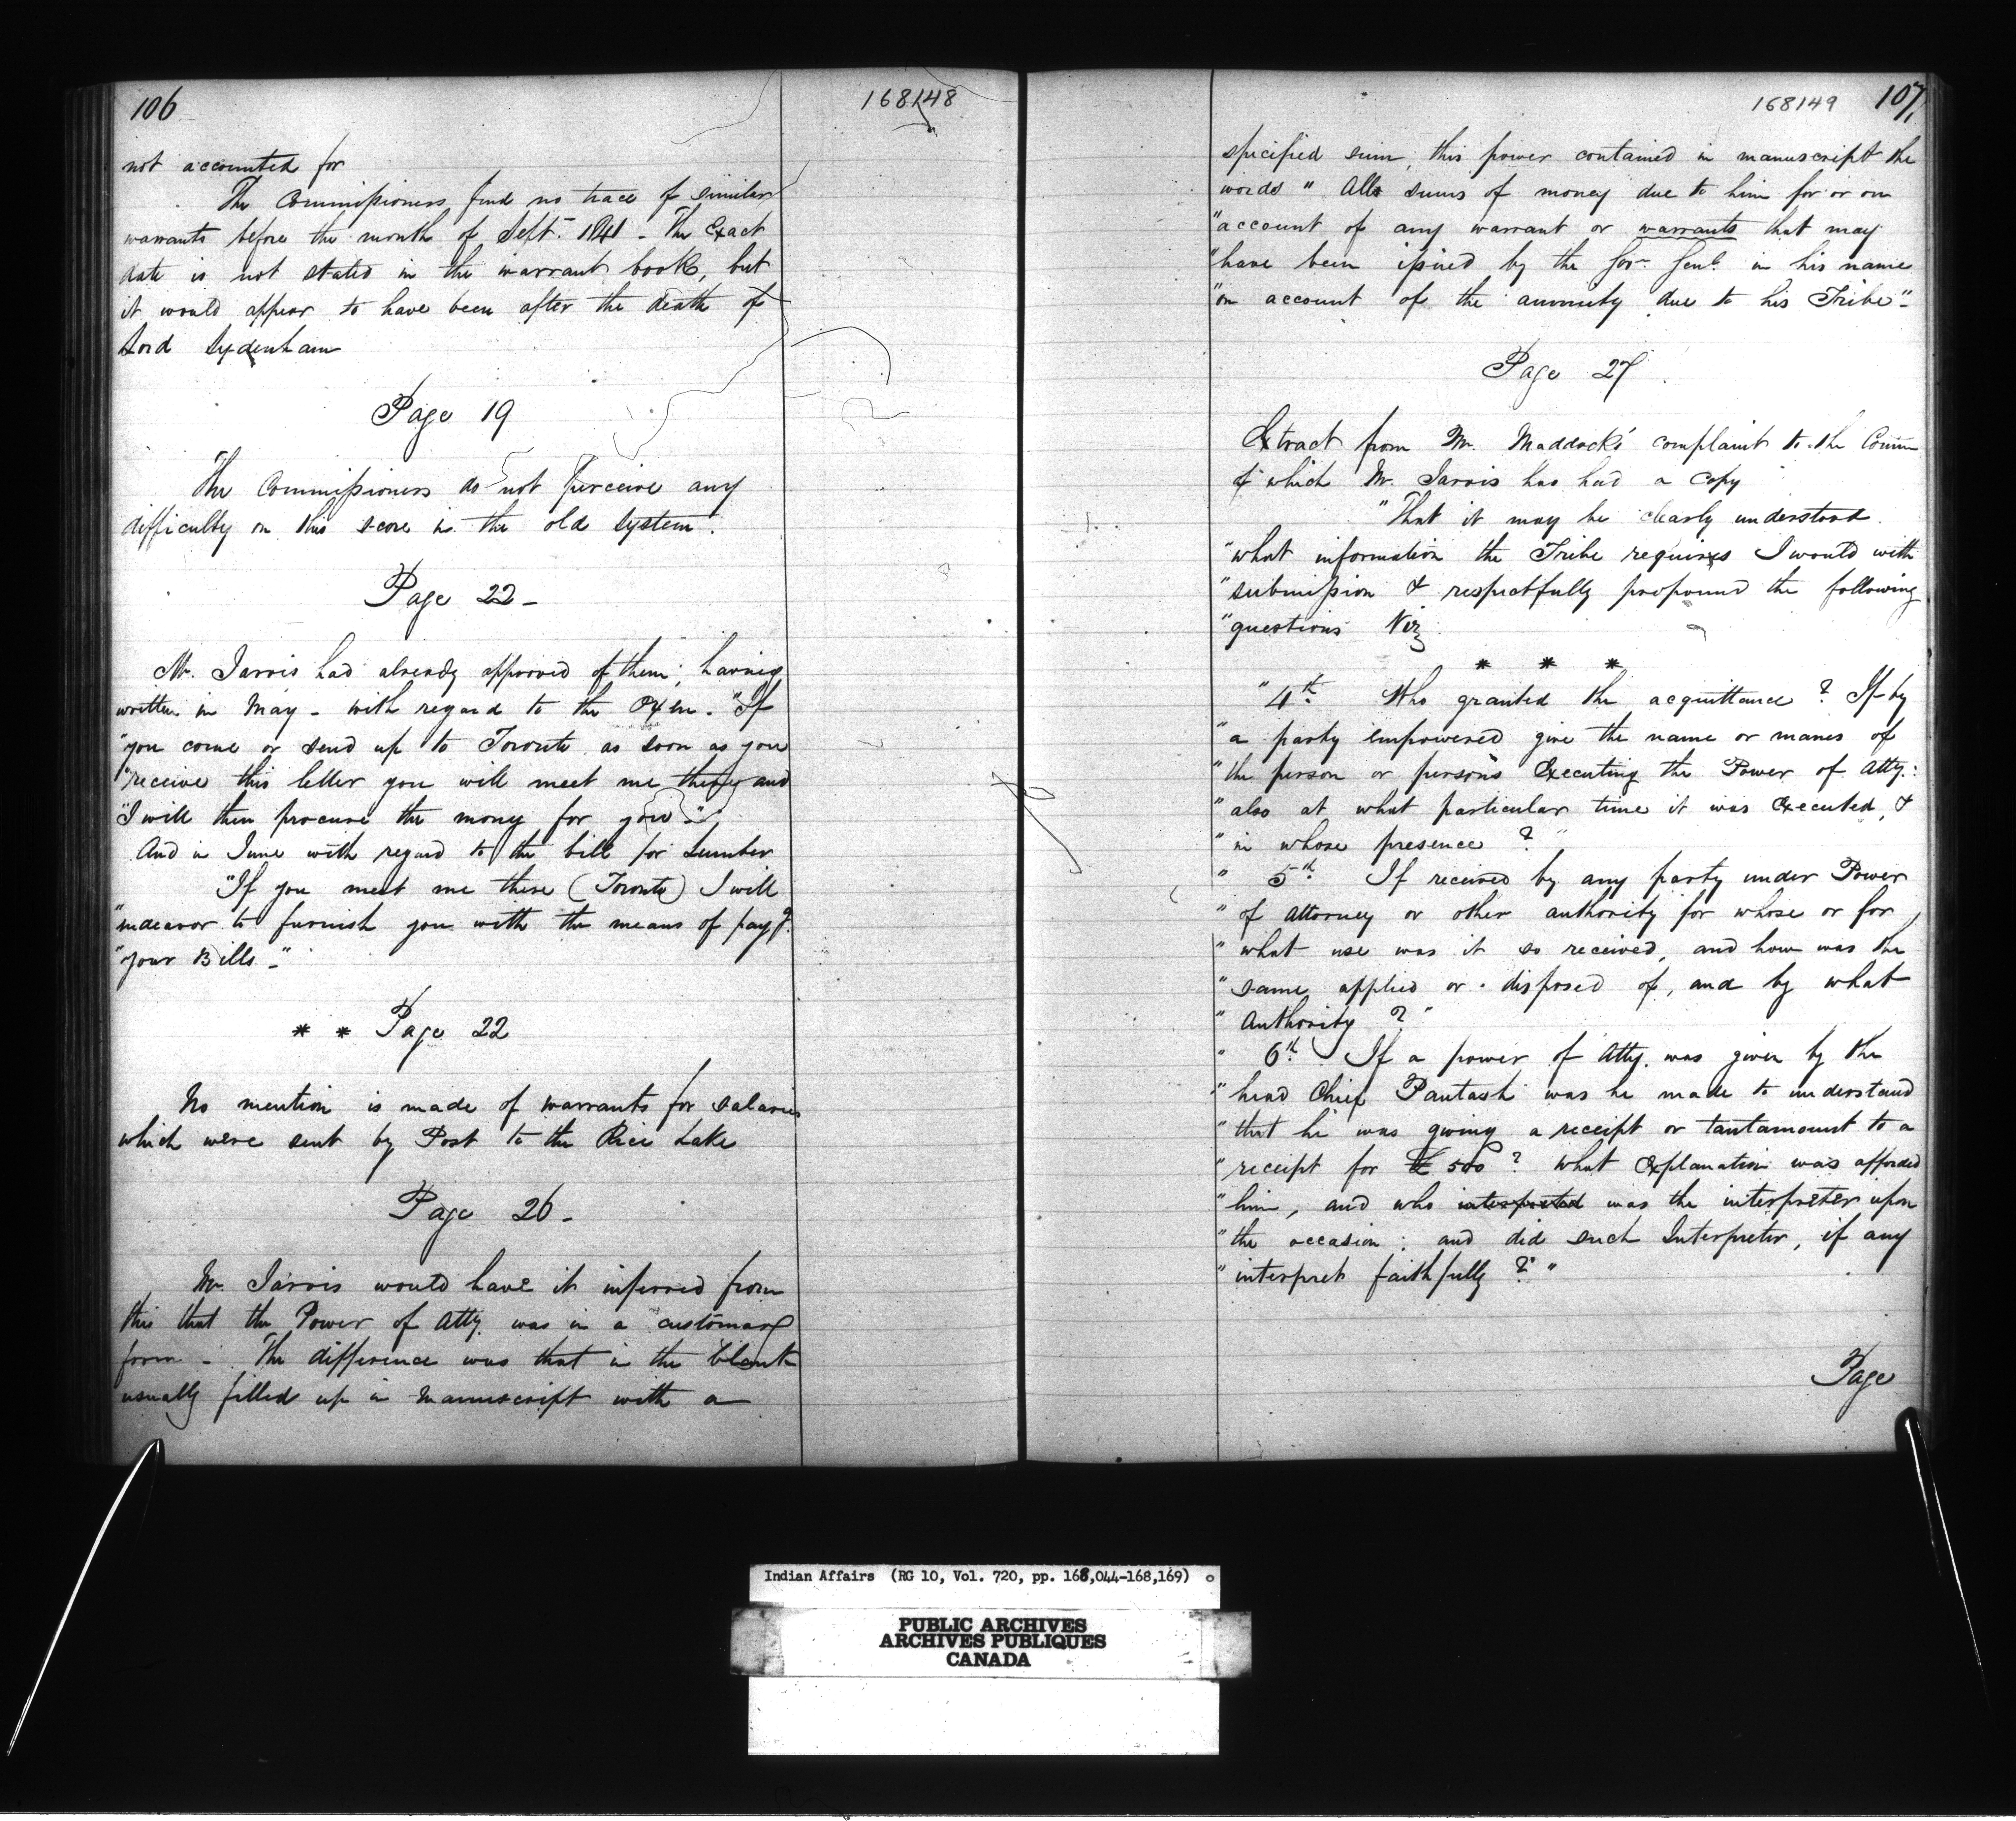 106
168148
not accounted for
The Commissioners find no trace of similar
warrants before the month of Sept. 1841 - The Exact
date is not stated in the warrant book, but
it would appear to have been after the death of
Lord Sydenham
Page 19
The Commissioners do not perceive any
difficulty on this score in the old system.
Page 22 -
Mr. Jarvis had already approved of them, having
written in May - with regard to the Oxen. "If
"you come or send up to Toronto as soon as you
"receive this letter you will meet me there and
"I will then procure the money for you -"
And in June with regard to the bill for Lumber
"If you meet me there (Toronto) I will
"endeavor to furnish you with the means of payg.
"your Bills -"
* * Page 22
No mention is made of warrants for salaries
which were sent by Post to the Rice Lake
Page 26 -
Mr. Jarvis would have it inferred from
this that the Power of Atty. was in a customary
form - The difference was that in the blank
usually filled up in manuscript with a
168149 107,
specified sum, this power contained in manuscript the
words " All sums of money due to him for or on
"account of any warrant or warrants that may
"have been issued by the Govr. Genl. in his name
"on account of the annuity due to his Tribe" -
Page 27
Extract from Mr. Maddock's complaint to the Comm
of which Mr. Jarvis has had a copy
"That it may be clearly understood
"what information the Tribe requires I would with
"submission & respectfully propound the following
"questions Viz
* * *
" 4th. Who granted the acquittance ? If by
"a party empowered give the name or manes of
"the person or persons Executing the Power of Atty.:
"also at what particular time it was Executed, &
"in whose presence ? "
" 5th. If received by any party under Power
"of Attorney or other authority for whose or for
"what use was it so received, and how was the
"same applied or disposed of, and by what
"Authority ? "
" 6th. If a power of Atty. was given by the
"head Chief Pautash was he made to understand
"that he was giving a receipt or tantamount to a
"receipt for £ 500 ? What Explanation was afforded
"him, and who interpreted was the interpreter upon
"the occasion : and did such Interpreter, if any
"interpret faithfully ? "
Page
Indian Affairs (RG 10, Vol. 720, pp. 168,044-168,169)
PUBLIC ARCHIVES
ARCHIVES PUBLIQUES
CANADA